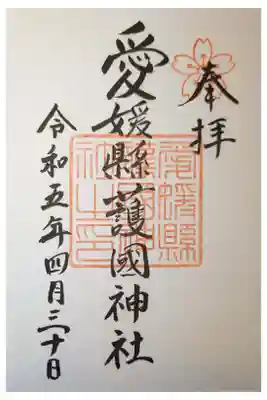 奉拝
愛媛縣護國神社
愛媛縣護國神社之印
令和五年四月三十日